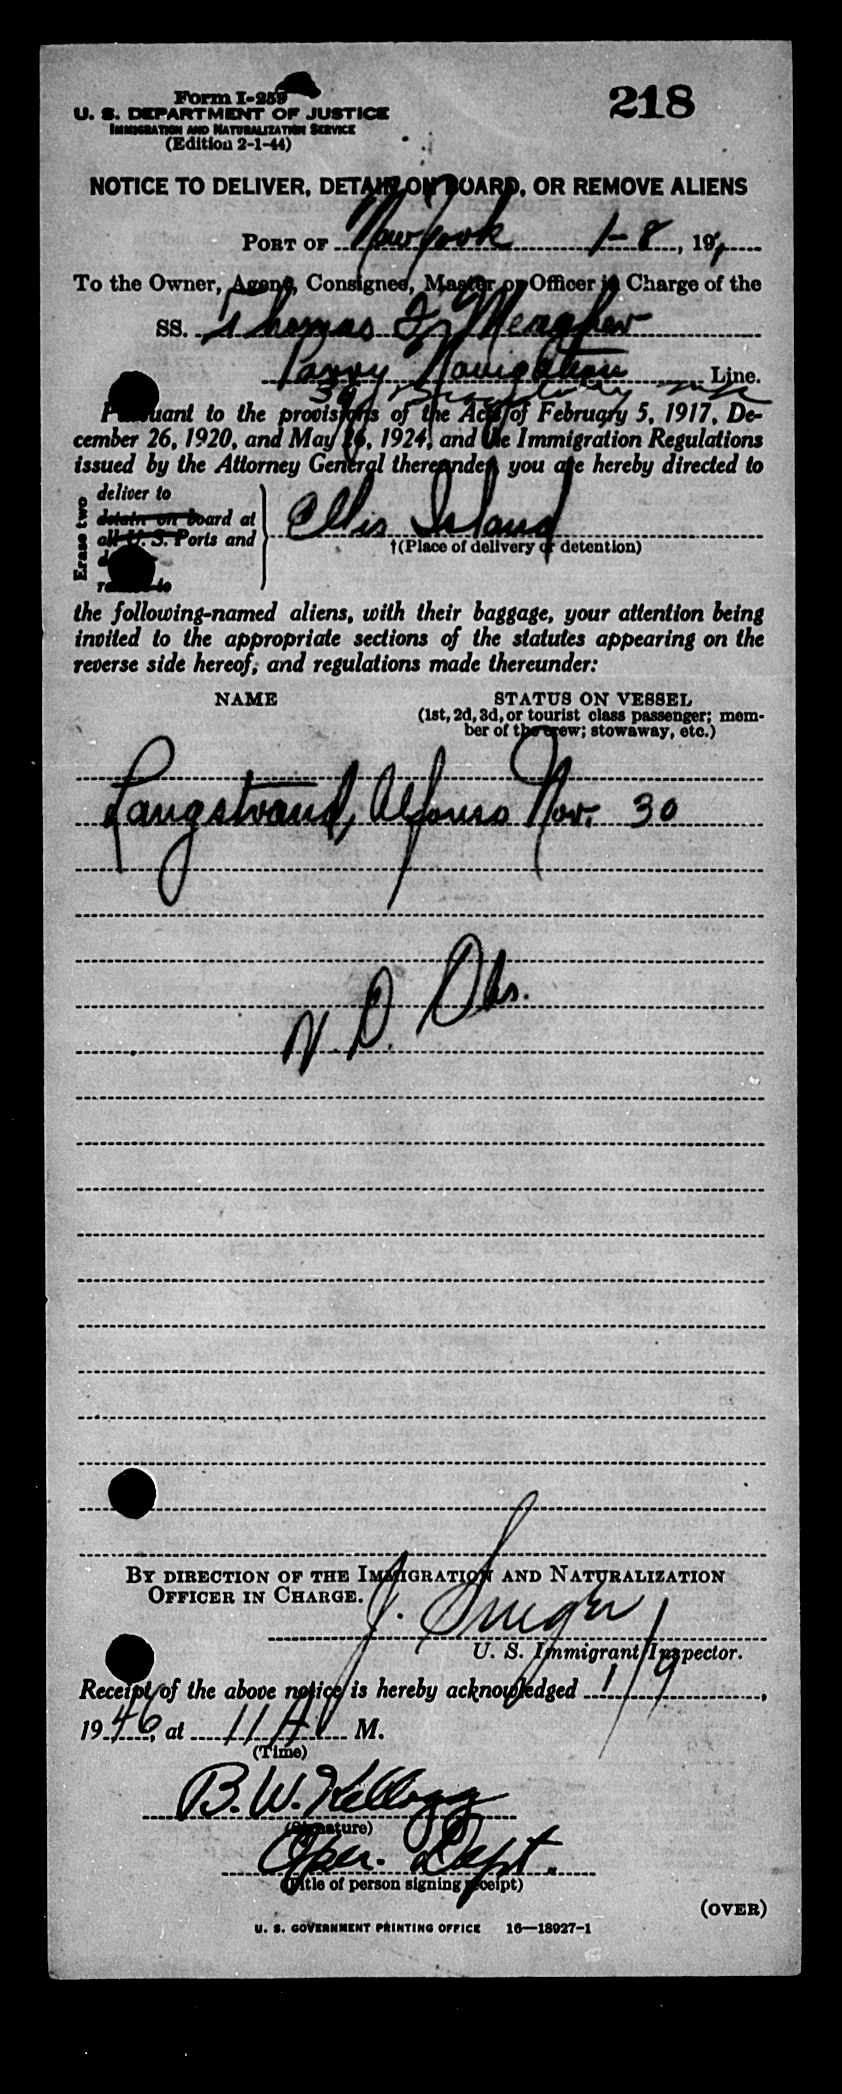 Form I-259
218
U. S. DEPARTMENT OF JUSTICE
IMMIGRATION AND NATURALIZATION SERVICE
(Edition 2-1-44)
NOTICE TO DELIVER, DETAIN ON BOARD, OR REMOVE ALIENS
PORT OF New York 1-8, 19
To the Owner, Agent, Consignee, Master or Officer in Charge of the
SS. Thomas F. Meagher
Navigation Line.
39 Broadway
Pursuant to the provisions of the Acts of February 5, 1917, De-
cember 26, 1920, and May 26, 1924, and the Immigration Regulations
issued by the Attorney General thereunder, you are hereby directed to
Erase two
deliver to
detain on board at
all U. S. Ports and
Ellis Island
†(Place of delivery or detention)
the following-named aliens, with their baggage, your attention being
invited to the appropriate sections of the statutes appearing on the
reverse side hereof, and regulations made thereunder:
NAME STATUS ON VESSEL
(1st, 2d, 3d, or tourist class passenger; mem-
ber of the crew; stowaway, etc.)
Langstrand, Alfonso Nov. 30
N. D. Obs.
BY DIRECTION OF THE IMMIGRATION AND NATURALIZATION
OFFICER IN CHARGE.
J.
U. S. Immigrant Inspector.
Receipt of the above notice is hereby acknowledged 1/9,
1946, at 11 A M.
(Time)
B. W. Kellogg
(Signature)
Oper. Dept.
(Title of person signing receipt)
(OVER)
U. S. GOVERNMENT PRINTING OFFICE 16—18927-1